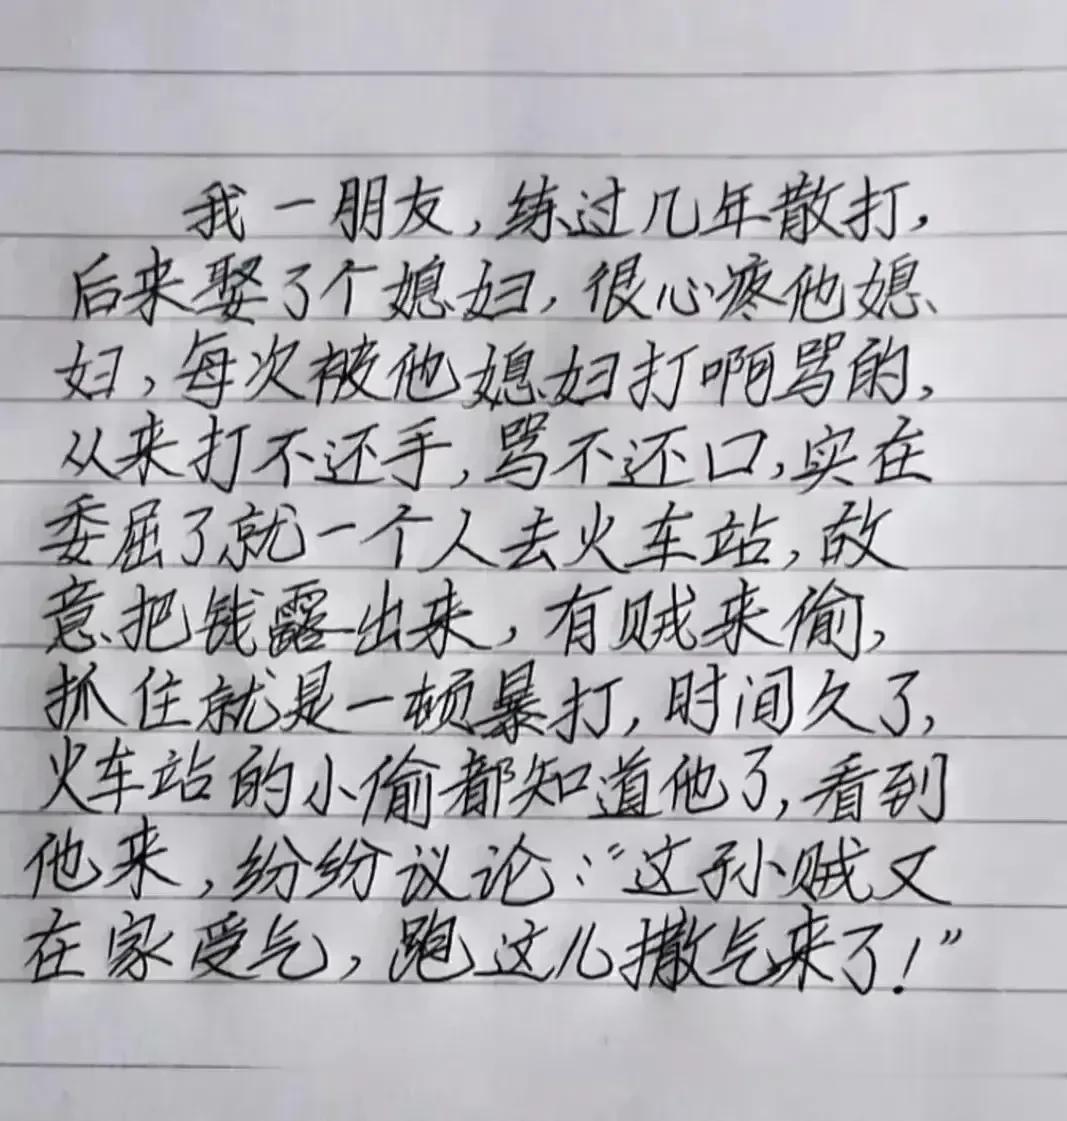 我一朋友，练过几年散打，
后来娶了个媳妇，很心疼他媳
妇，每次被他媳妇打啊骂的，
从来打不还手，骂不还口，实在
委屈了就一个人去火车站，故
意把钱露出来，有贼来偷，
抓住就是一顿暴打，时间久了，
火车站的小偷都知道他了，看到
他来，纷纷议论：“这孙贼又
在家受气，跑这儿撒气来了！”